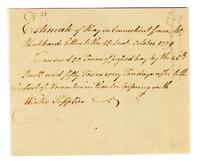 Estimate of Hay in Connecticut from Mr.
Hubbards letter to the 15 Inst. October 1779
thousand 20 Tonns of pressed hay by the 25th
Inst. and fifty Tonns every Ten days after to the
last of November in the
Winter Supplies